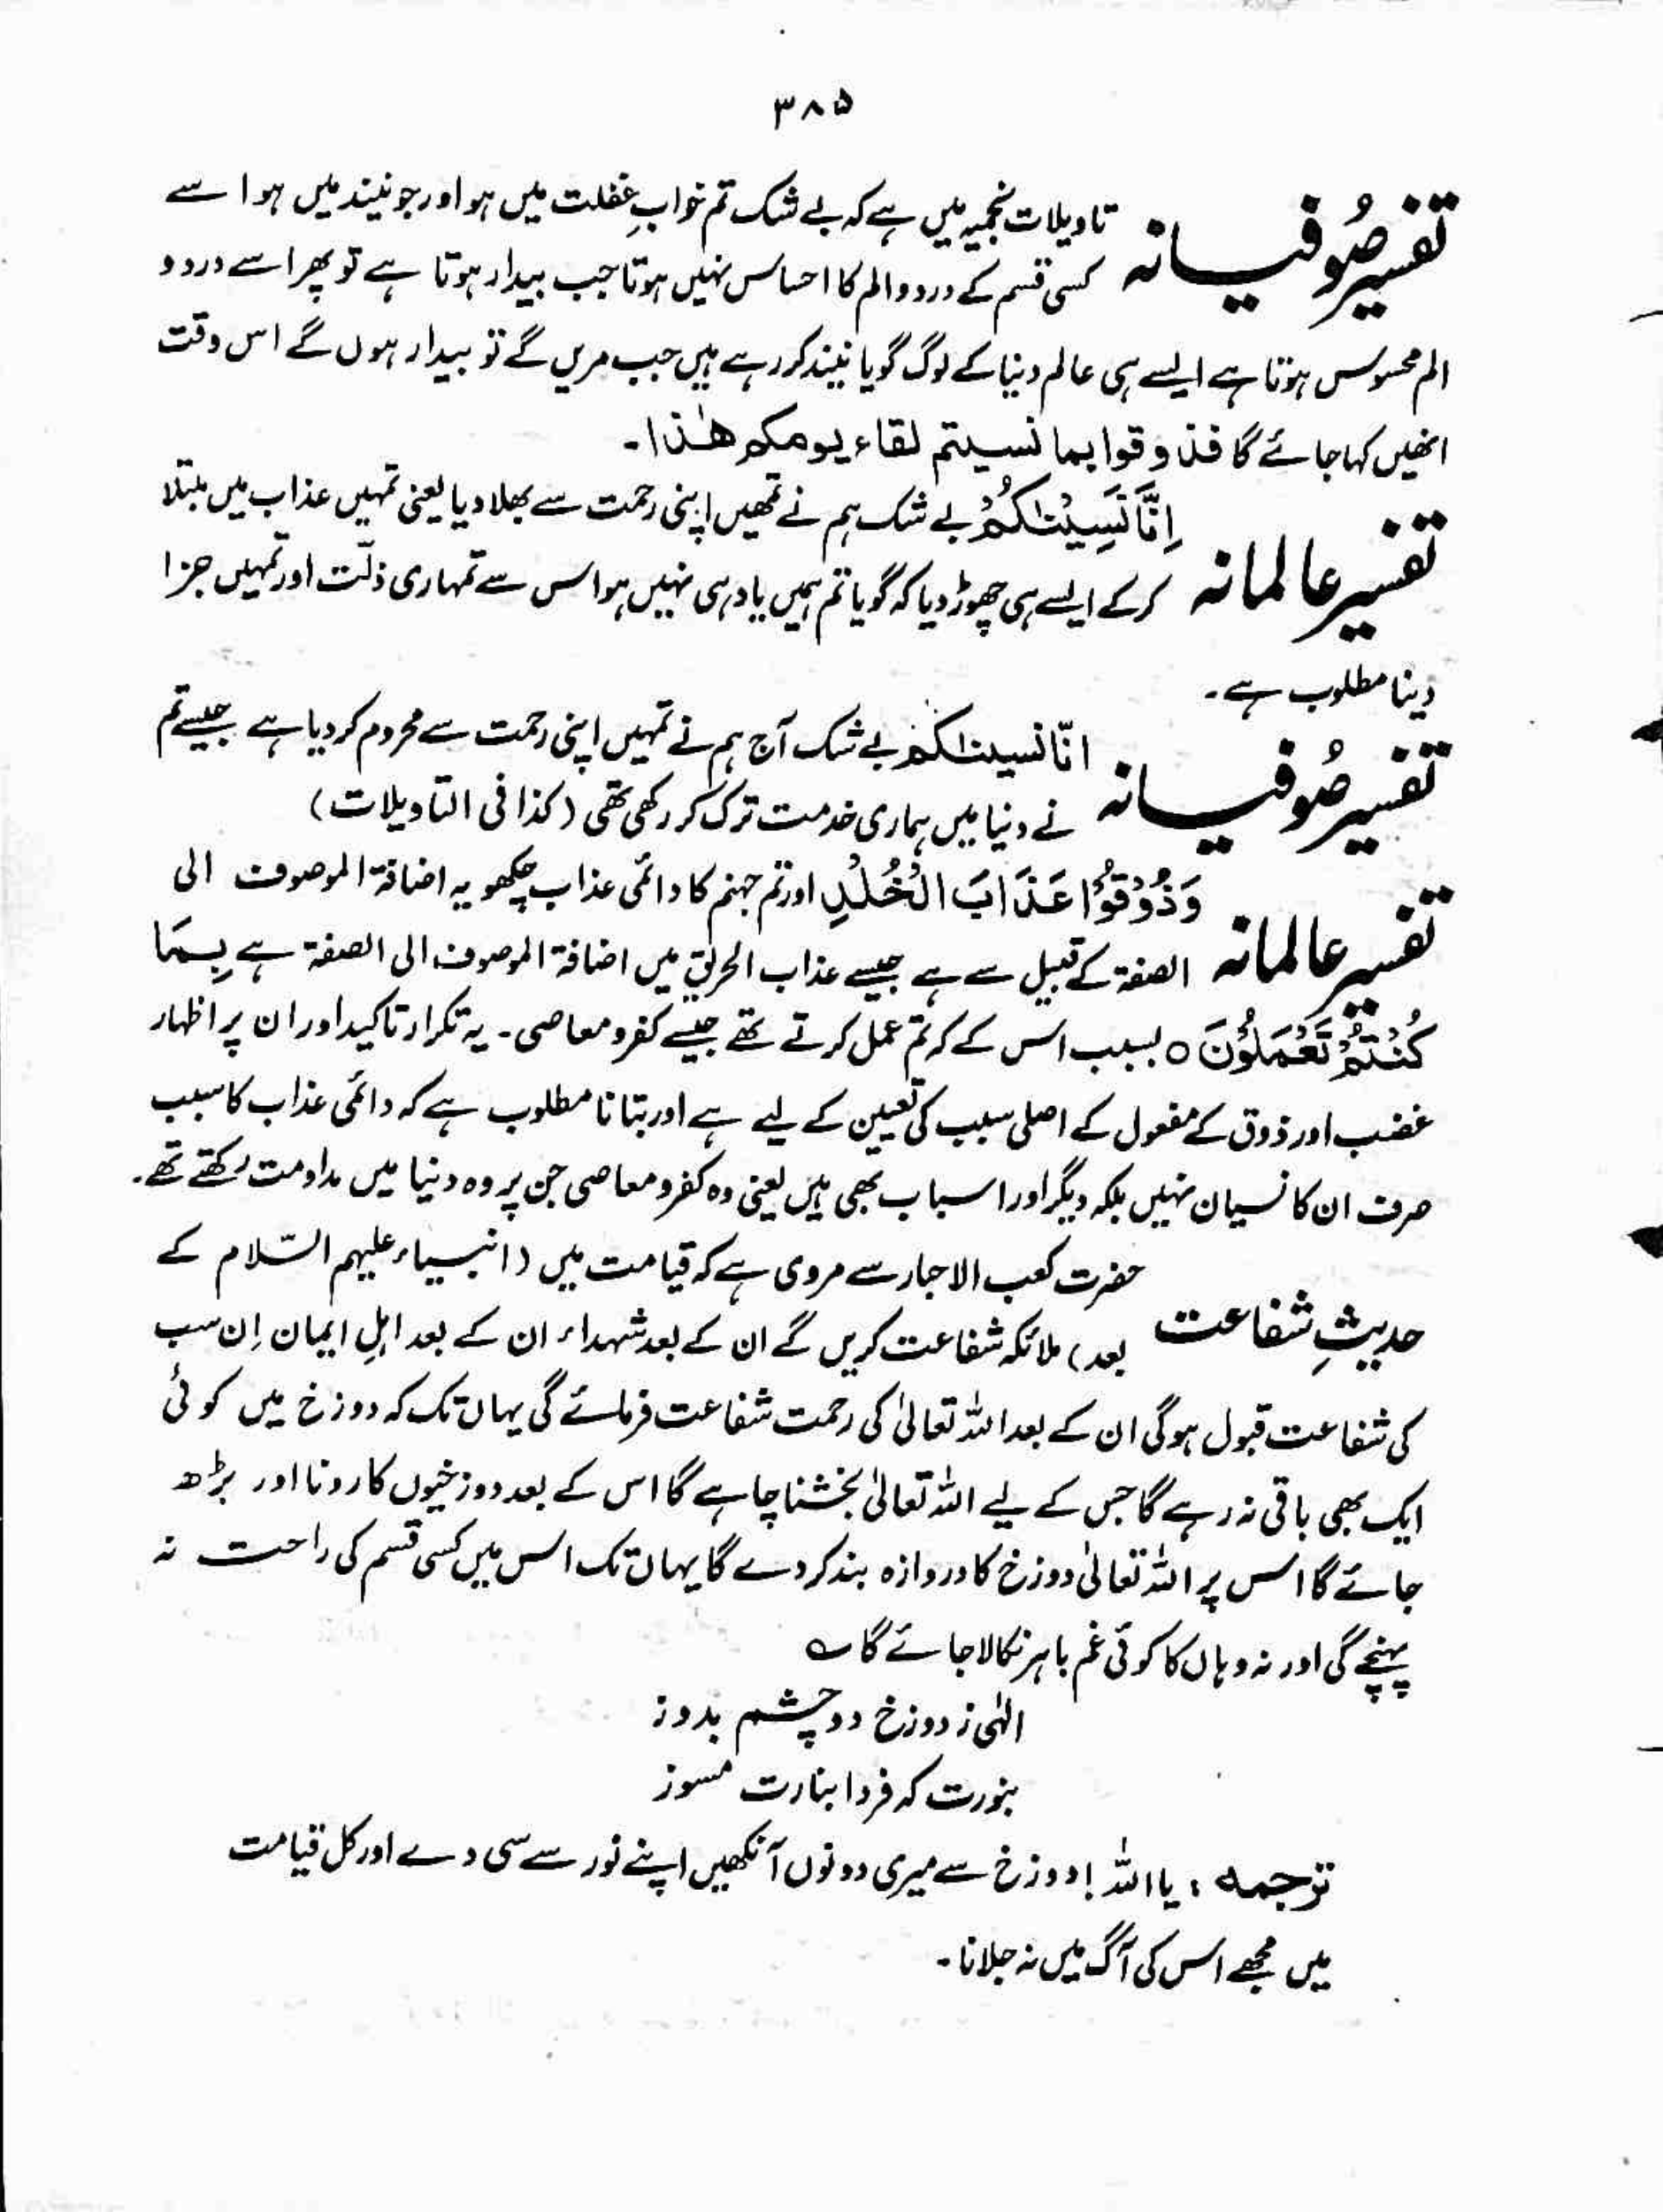 ۳۸۵
تفسیر صُوفیانہ تاویلات نجمیہ میں ہے کہ بے شک تم خوابِ غفلت میں ہو اور جو نیند میں ہو اسے
کسی قسم کے درد و الم کا احساس نہیں ہوتا جب بیدار ہوتا ہے تو پھر اسے درد و
الم محسوس ہوتا ہے ایسے ہی عالم دنیا کے لوگ گویا نیند کر رہے ہیں جب مریں گے تو بیدار ہوں گے اس وقت
انھیں کہا جائے گا فذوقوا بما نسیتم لقاء یومکم ھٰذا۔
تفسیر عالمانہ اِنَّا نَسِیْنٰکُمْ بے شک ہم نے تمھیں اپنی رحمت سے بھلا دیا یعنی تمہیں عذاب میں مبتلا
کر کے ایسے ہی چھوڑ دیا کہ گویا تم ہمیں یاد ہی نہیں ہو اس سے تمہاری ذلّت اور تمہیں جزا
دینا مطلوب ہے۔
تفسیر صُوفیانہ انّا نسینٰکم بے شک آج ہم نے تمہیں اپنی رحمت سے محروم کر دیا ہے جیسے تم
نے دنیا میں ہماری خدمت ترک کر رکھی تھی (کذا فی التاویلات)
تفسیر عالمانہ وَذُوْقُوْا عَذَابَ الْخُلْدِ اور تم جہنم کا دائمی عذاب چکھو یہ اضافۃ الموصوف الی
الصفۃ کے قبیل سے ہے جیسے عذاب الحریق میں اضافۃ الموصوف الی الصفۃ ہے بِمَا
کُنْتُمْ تَعْمَلُوْنَ ○ بسبب اس کے کہ تم عمل کرتے تھے جیسے کفر و معاصی۔ یہ تکرار تاکید اور ان پر اظہار
غضب اور ذوق کے مفعول کے اصلی سبب کی تعیین کے لیے ہے اور بتانا مطلوب ہے کہ دائمی عذاب کا سبب
صرف ان کا نسیان نہیں بلکہ دیگر اور اسباب بھی ہیں یعنی وہ کفر و معاصی جن پر وہ دنیا میں مداومت رکھتے تھے۔
حدیثِ شفاعت حضرت کعب الاحبار سے مروی ہے کہ قیامت میں (انبیاء علیہم السّلام کے
بعد) ملائکہ شفاعت کریں گے ان کے بعد شہداء ان کے بعد اہلِ ایمان اِن سب
کی شفاعت قبول ہوگی ان کے بعد اللہ تعالیٰ کی رحمت شفاعت فرمائے گی یہاں تک کہ دوزخ میں کوئی
ایک بھی باقی نہ رہے گا جس کے لیے اللہ تعالیٰ بخشنا چاہے گا اس کے بعد دوزخیوں کا رونا اور بڑھ
جائے گا اس پر اللہ تعالیٰ دوزخ کا دروازہ بند کر دے گا یہاں تک اس میں کسی قسم کی راحت نہ
پہنچے گی اور نہ وہاں کا کوئی غم باہر نکالا جائے گا ؎
الٰہی ز دوزخ دو چشم بدوز
بنورت کہ فردا بنارت مسوز
ترجمہ : یا اللہ! دوزخ سے میری دونوں آنکھیں اپنے نور سے سی دے اور کل قیامت
میں مجھے اس کی آگ میں نہ جلانا۔